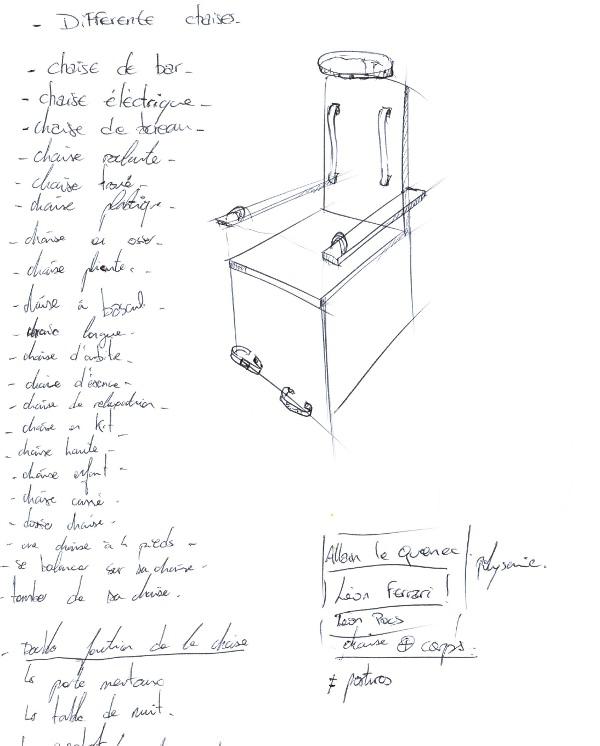 - Différente chaises -
- chaise de bar -
- chaise éléctrique -
- chaise de bureau -
- chaise roulante -
- chaise troué -
- chaise plastique -
- chaise en osier -
- chaise pliente -
- chaise à bascul -
- chaise longue -
- chaise d'arbitre -
- chaise
- chaise de
- chaise en kit -
- chaise haute -
- chaise enfant -
- chaise carré -
- dossier chaise -
- une chaise à 4 pieds -
- se balancer sur sa chaise -
- tomber de sa chaise.
- Double fonction de la chaise
↳ porte menteau
↳ table de nuit -
Allain le Quernec
polysemie.
Léon Ferrari !
chaise ⊕ corps :
≠ postures